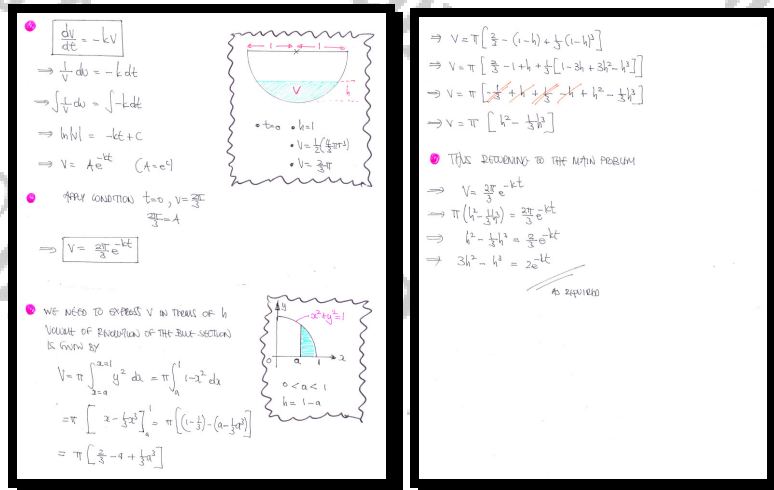 dv/dt = -kV
⇒ 1/V dv = -k dt
⇒ ∫ 1/V dv = ∫ -k dt
⇒ ln|V| = -kt + C
⇒ V = Ae^-kt (A = e^c)
APPLY CONDITION t=0, V = 2π/3
2π/3 = A
⇒ V = 2π/3 e^-kt
1 1
V
h
• t=0 • h=1
• V = 1/2(4/3 π×1³)
• V = 2/3 π
WE NEED TO EXPRESS V IN TERMS OF h
VOLUME OF REVOLUTION OF THE BLUE SECTION
IS GIVEN BY
V = π ∫_{x=a}^{x=1} y² dx = π ∫_a^1 1-x² dx
= π [x - 1/3 x³]_a^1 = π [(1-1/3) - (a - 1/3 a³)]
= π [2/3 - a + 1/3 a³]
y
x² + y² = 1
O a 1 x
0 < a < 1
h = 1-a
⇒ V = π [2/3 - (1-h) + 1/3 (1-h)³]
⇒ V = π [2/3 - 1 + h + 1/3 [1 - 3h + 3h² - h³]]
⇒ V = π [-1/3 + h + 1/3 - h + h² - 1/3 h³]
⇒ V = π [h² - 1/3 h³]
THUS RETURNING TO THE MAIN PROBLEM
⇒ V = 2π/3 e^-kt
⇒ π(h² - 1/3 h³) = 2π/3 e^-kt
⇒ h² - 1/3 h³ = 2/3 e^-kt
⇒ 3h² - h³ = 2e^-kt
AS REQUIRED